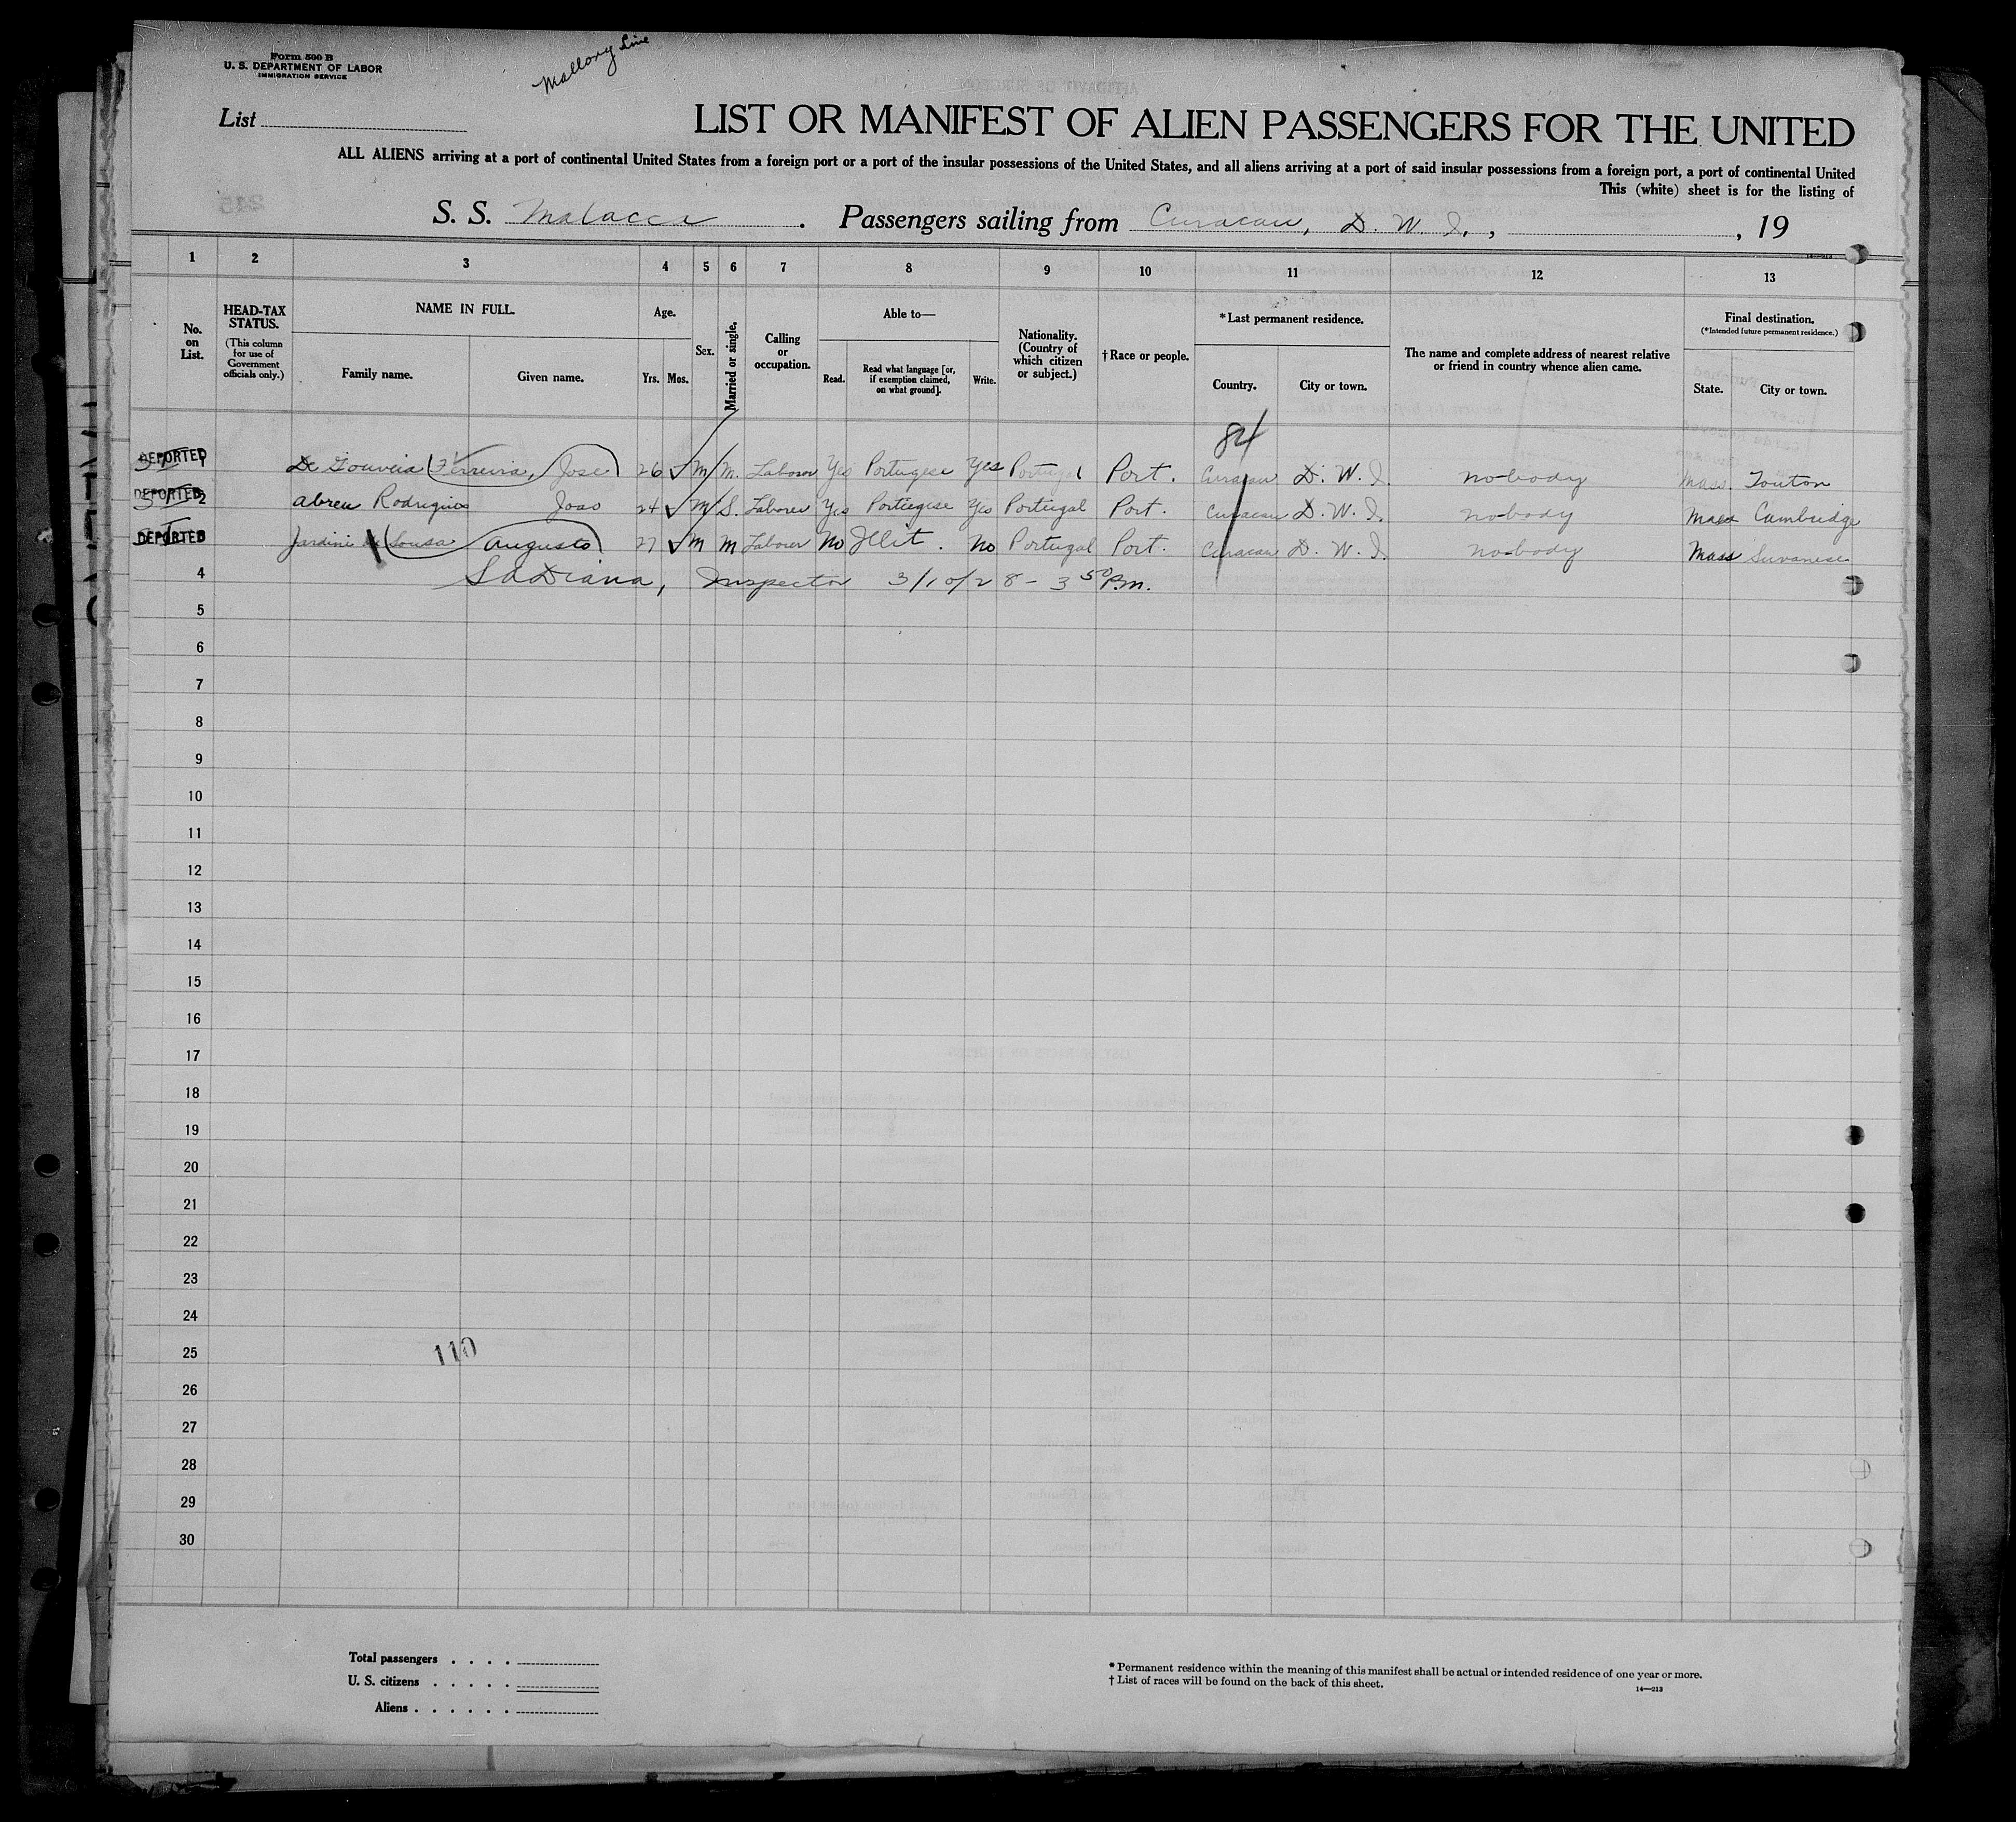 Form 500 B
U. S. DEPARTMENT OF LABOR
IMMIGRATION SERVICE
Mallory Line
List
LIST OR MANIFEST OF ALIEN PASSENGERS FOR THE UNITED
ALL ALIENS arriving at a port of continental United States from a foreign port or a port of the insular possessions of the United States, and all aliens arriving at a port of said insular possessions from a foreign port, a port of continental United
This (white) sheet is for the listing of
S. S. Malacca . Passengers sailing from Curacau, D. W. I., , , 19
1 2 3 4 5 6 7 8 9 10 11 12 13
No. on List.
HEAD-TAX STATUS.
(This column for use of Government officials only.)
NAME IN FULL.
Family name.
Given name.
Age.
Yrs. Mos.
Sex.
Married or single.
Calling or occupation.
Able to—
Read.
Read what language [or, if exemption claimed, on what ground].
Write.
Nationality. (Country of which citizen or subject.)
† Race or people.
* Last permanent residence.
Country.
City or town.
The name and complete address of nearest relative or friend in country whence alien came.
Final destination.
(*Intended future permanent residence.)
State.
City or town.
84
DEPORTED 1 De Gouveia Ferreira, Jose 26 ✓ M M. Laborer Yes Portugese Yes Portugal Port. Curacau D. W. I. nobody Mass. Touton
DEPORTED 2 Abreu Rodriguios Joao 24 ✓ M S. Laborer Yes Portiegese Yes Porteigal Port. Curacau D. W. I. nobody Mass Cambridge
DEPORTED 3 Jardini de Sousa Augusto 27 ✓ M M Laborer No Illit. No Portugal Port. Curacau D. W. I. nobody Mass
4 Inspector 3/10/28 - 3 50 P.m.
5
6
7
8
9
10
11
12
13
14
15
16
17
18
19
20
21
22
23
24
25
110
26
27
28
29
30
Total passengers . . . .
U. S. citizens . . . . .
Aliens . . . . . .
* Permanent residence within the meaning of this manifest shall be actual or intended residence of one year or more.
† List of races will be found on the back of this sheet.
14—213